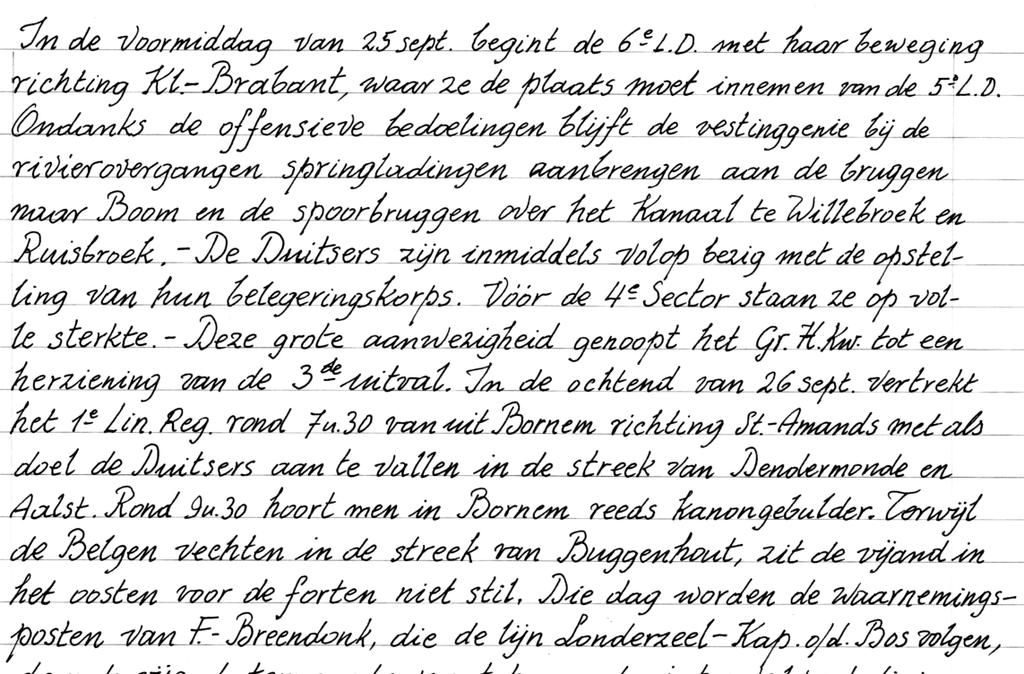 In de voormiddag van 25 sept. begint de 6e L.D. met haar beweging
richting Kl.-Brabant, waar ze de plaats moet innemen van de 5e L.D.
Ondanks de offensieve bedoelingen blijft de vestinggenie bij de
rivierovergangen springladingen aanbrengen aan de bruggen
naar Boom en de spoorbruggen over het Kanaal te Willebroek en
Ruisbroek. - De Duitsers zijn inmiddels volop bezig met de opstel-
ling van hun belegeringskorps. Vóór de 4e Sector staan ze op vol-
le sterkte. - Deze grote aanwezigheid genoopt het Gr. H. Kw. tot een
herziening van de 3de uitval. In de ochtend van 26 sept. vertrekt
het 1e Lin. Reg. rond 7u.30 van uit Bornem richting St.-Amands met als
doel de Duitsers aan te vallen in de streek van Dendermonde en
Aalst. Rond 9u.30 hoort men in Bornem reeds kanongebulder. Terwijl
de Belgen vechten in de streek van Buggenhout, zit de vijand in
het oosten voor de forten niet stil. Die dag worden de waarnemings-
posten van F.-Breendonk, die de lijn Londerzeel-Kap. o/d. Bos volgen,